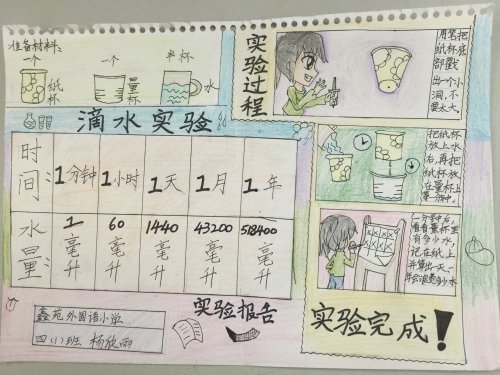 准备材料:
一个 一个 半杯
纸杯 量杯 水
滴水实验
时间: 1分钟 1小时 1天 1月 1年
水量: 1毫升 60毫升 1440毫升 43200毫升 518400毫升
鑫苑外国语小学
四(1)班 杨欣雨
实验报告
实验过程
用笔把
纸杯底
部戳
出一个小
洞,不
要太大。
把纸杯
放上水
后,再把
纸杯放
在量杯上
一分钟后,
看看量杯里
有多少水,
记在纸上
并算出一天、一
年会浪费多少水
实验完成!